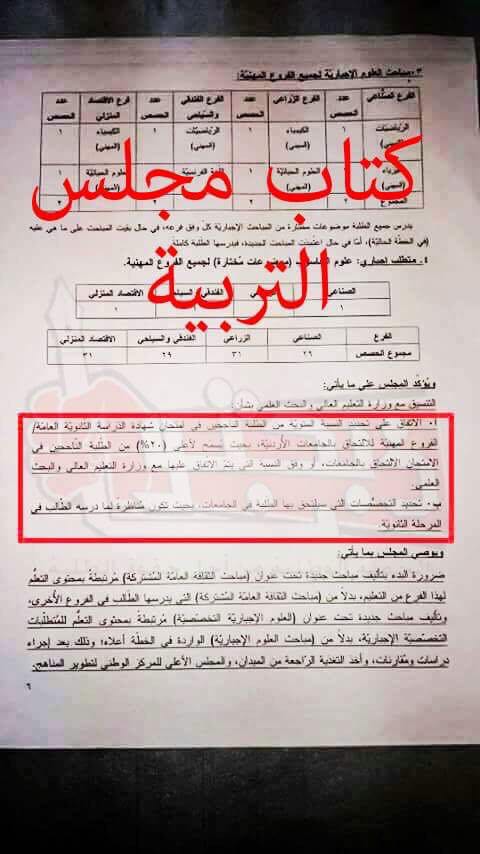 ٣-مباحث العلوم الإجباريّة لجميع الفروع المهنيّة:
الفرع الصّناعي عدد الحصص الفرع الزّراعي عدد الحصص الفرع الفندقي والسّياحي عدد الحصص فرع الاقتصاد المنزلي عدد الحصص
الرّياضيّات (المهني) ١ الكيمياء (المهني) ١ الرّياضيّات (المهني) ١ الكيمياء (المهني) ١
(المهني) العلوم الحياتيّة (المهني) ١ اللغة الفرنسيّة العلوم الحياتيّة (المهني) ١
المجموع ٢ ٢ ٢
كتاب مجلس
التربية
يدرس جميع الطّلبة موضوعات مختارة من المباحث الإجباريّة كلّ وفق فرعه، في حال بقيت المباحث على ما هي عليه
(في الخطّة الحاليّة)، أمّا في حال اعتُمدت المباحث الجديدة، فيدرسها الطّلبة كاملة.
٤-متطلب إجباري: علوم (موضوعات مُختارة) لجميع الفروع المهنية.
الصناعي الفندقي والسياحي الاقتصاد المنزلي
١ ١
الفرع الصناعي الزراعي الفندقي والسياحي الاقتصاد المنزلي
مجموع الحصص ٢٩ ٣١ ٢٩ ٣١
ويؤكّد المجلس على ما يأتي:
التنسيق مع وزارة التعليم العالي والبحث العلمي بشأن:
أ- الاتفاق على تحديد النسبة المئوية من الطّلبة الناجحين في امتحان شهادة الدراسة الثانويّة العامّة/
الفروع المهنيّة للالتحاق بالجامعات الأردنيّة، بحيث يُسمح لأعلى (٢٠%) من الطّلبة النّاجحين في
الامتحان الالتحاق بالجامعات، أو وفق النسبة التي يتمّ الاتفاق عليها مع وزارة التعليم العالي والبحث
العلمي.
ب- تحديد التخصّصات التي سيلتحق بها الطّلبة في الجامعات، بحيث تكون مُناظرةً لما درسه الطّالب في
المرحلة الثانويّة.
ويوصي المجلس بما يأتي:
ضرورة البدء بتأليف مباحث جديدة تحت عنوان (مباحث الثقافة العامّة المُشتركة) مُرتبطة بمحتوى التعلُّم
لهذا الفرع من التعليم، بدلاً من (مباحث الثقافة العامّة المُشتركة) التي يدرسها الطّالب في الفروع الأُخرى،
وتأليف مباحث جديدة تحت عنوان (العلوم الإجباريّة التخصّصيّة) مُرتبطة بمحتوى التعلُّم للمُتطلّبات
التخصّصيّة الإجباريّة، بدلاً من (مباحث العلوم الإجباريّة) الواردة في الخطّة أعلاه؛ وذلك بعد إجراء
دراسات ومُقارنات، وأخذ التغذية الرّاجعة من الميدان، والمجلس الأعلى للمركز الوطني لتطوير المناهج.
٦